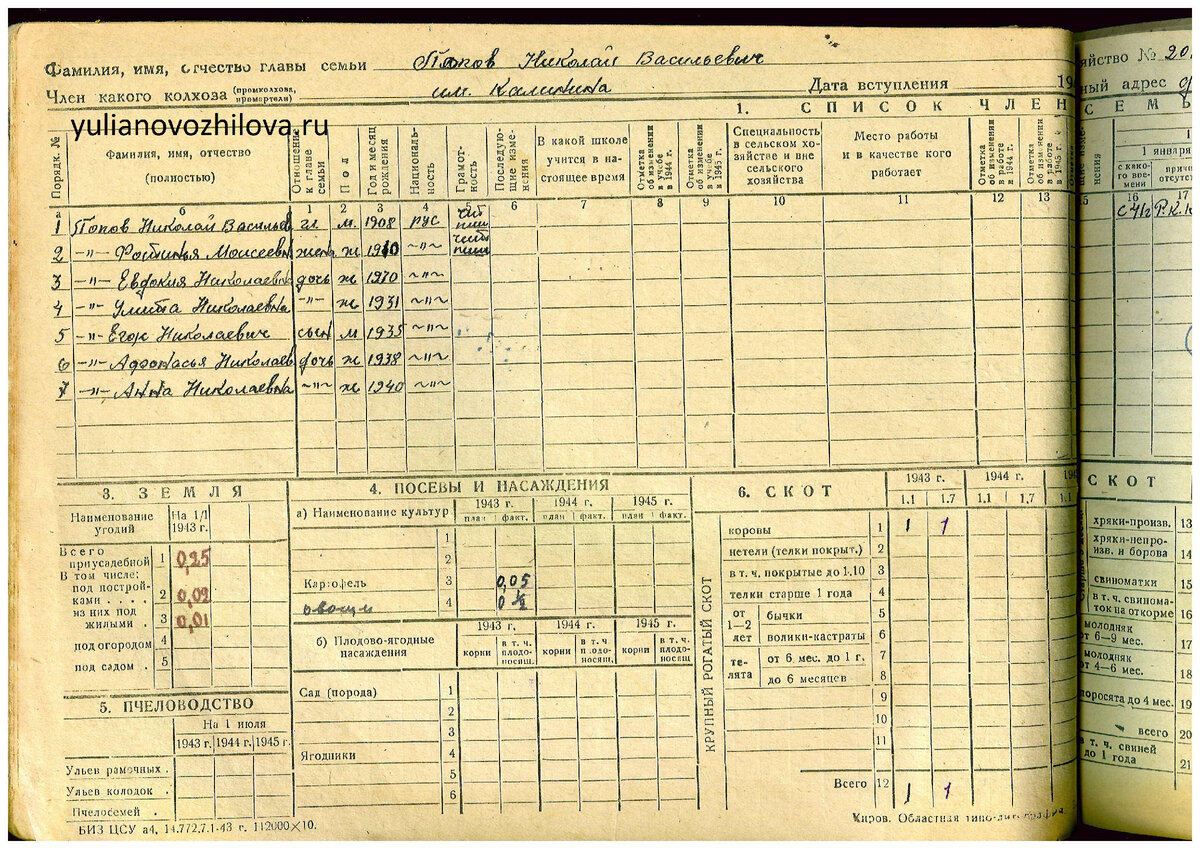 Фамилия, имя, отчество главы семьи Попов Николай Васильевич
яйство № 20
Член какого колхоза (промколхоза, промартели) им. Калинина Дата вступления 19
ный адрес
yulianovozhilova.ru
1. СПИСОК ЧЛЕН
СЕМЬ
Порядк. №
Фамилия, имя, отчество (полностью)
Отношение к главе семьи
Пол
Год и месяц рождения
Националь-ность
Грамот-ность
Последую-щие изме-нения
В какой школе учится в на-стоящее время
Отметка об изменении в учебе в 1944 г.
Отметка об изменении в учебе в 1945 г.
Специальность в сельском хо-зяйстве и вне сельского хозяйства
Место работы и в качестве кого работает
Отметка об изменении в работе в 1944 г.
Отметка об изменении в работе в 1945 г.
нения
1 января
с како-го вре-мени
а б 1 2 3 4 5 6 7 8 9 10 11 12 13 15 16 17
1 Попов Николай Васильев гл. м. 1908 рус чит пиш
с 41г Р.К.К
2 -"- Фотинья Моисеевн жена ж 1910 ~"~ чит пиш
3 -"- Евдокия Николаевна дочь ж ~"~
4 -"- Улита Николаевна -"- ж 1931 ~"~
5 -"- Егор Николаевич сын м 1935 ~"~
6 -"- Афонасья Николаев дочь ж 1938 ~"~
7 -"- Анна Николаевна ~"~ ж 1940 ~"~
3. ЗЕМЛЯ
Наименование угодий На 1/I 1943 г.
Всего приусадебной 1 0,25
В том числе:
под построй-ками 2 0,09
из них под жилыми 3 0,01
под огородом 4
под садом 5
5. ПЧЕЛОВОДСТВО
На 1 июля
1943 г. 1944 г. 1945 г.
Ульев рамочных
Ульев колодок
Пчелосемей
БИЗ ЦСУ а4, 14.772.7.1-43 г. 112000×10.
4. ПОСЕВЫ И НАСАЖДЕНИЯ
а) Наименование культур 1943 г. 1944 г. 1945 г.
план факт. план факт. план факт.
1
2
Картофель 3 0,05
овощи 4
б) Плодово-ягодные насаждения 1943 г. 1944 г. 1945 г.
корни в т. ч. плодо-носящ. корни в т. ч. плодо-носящ. корни в т. ч. плодо-носящ
Сад (порода) 1
2
3
Ягодники 4
5
6
6. СКОТ
1943 г. 1944 г.
1.1 1.7 1.1 1,7 1.1
КРУПНЫЙ РОГАТЫЙ СКОТ
коровы 1 1 1
нетели (телки покрыт.) 2
в т. ч. покрытые до 1.10 3
телки старше 1 года 4
от 1—2 лет бычки 5
волики-кастраты 6
те-лята от 6 мес. до 1 г. 7
до 6 месяцев 8
9
10
11
Всего 12 1 1
Киров. Областная типо-литография
СКОТ
хряки-произв. 13
хряки-непро-изв. и борова 14
свиноматки 15
в т. ч. свинома-ток на откорме 16
молодняк от 6—9 мес. 17
молодняк от 4—6 мес. 18
поросята до 4 мес. 19
всего 20
в т. ч. свиней до 1 года 21